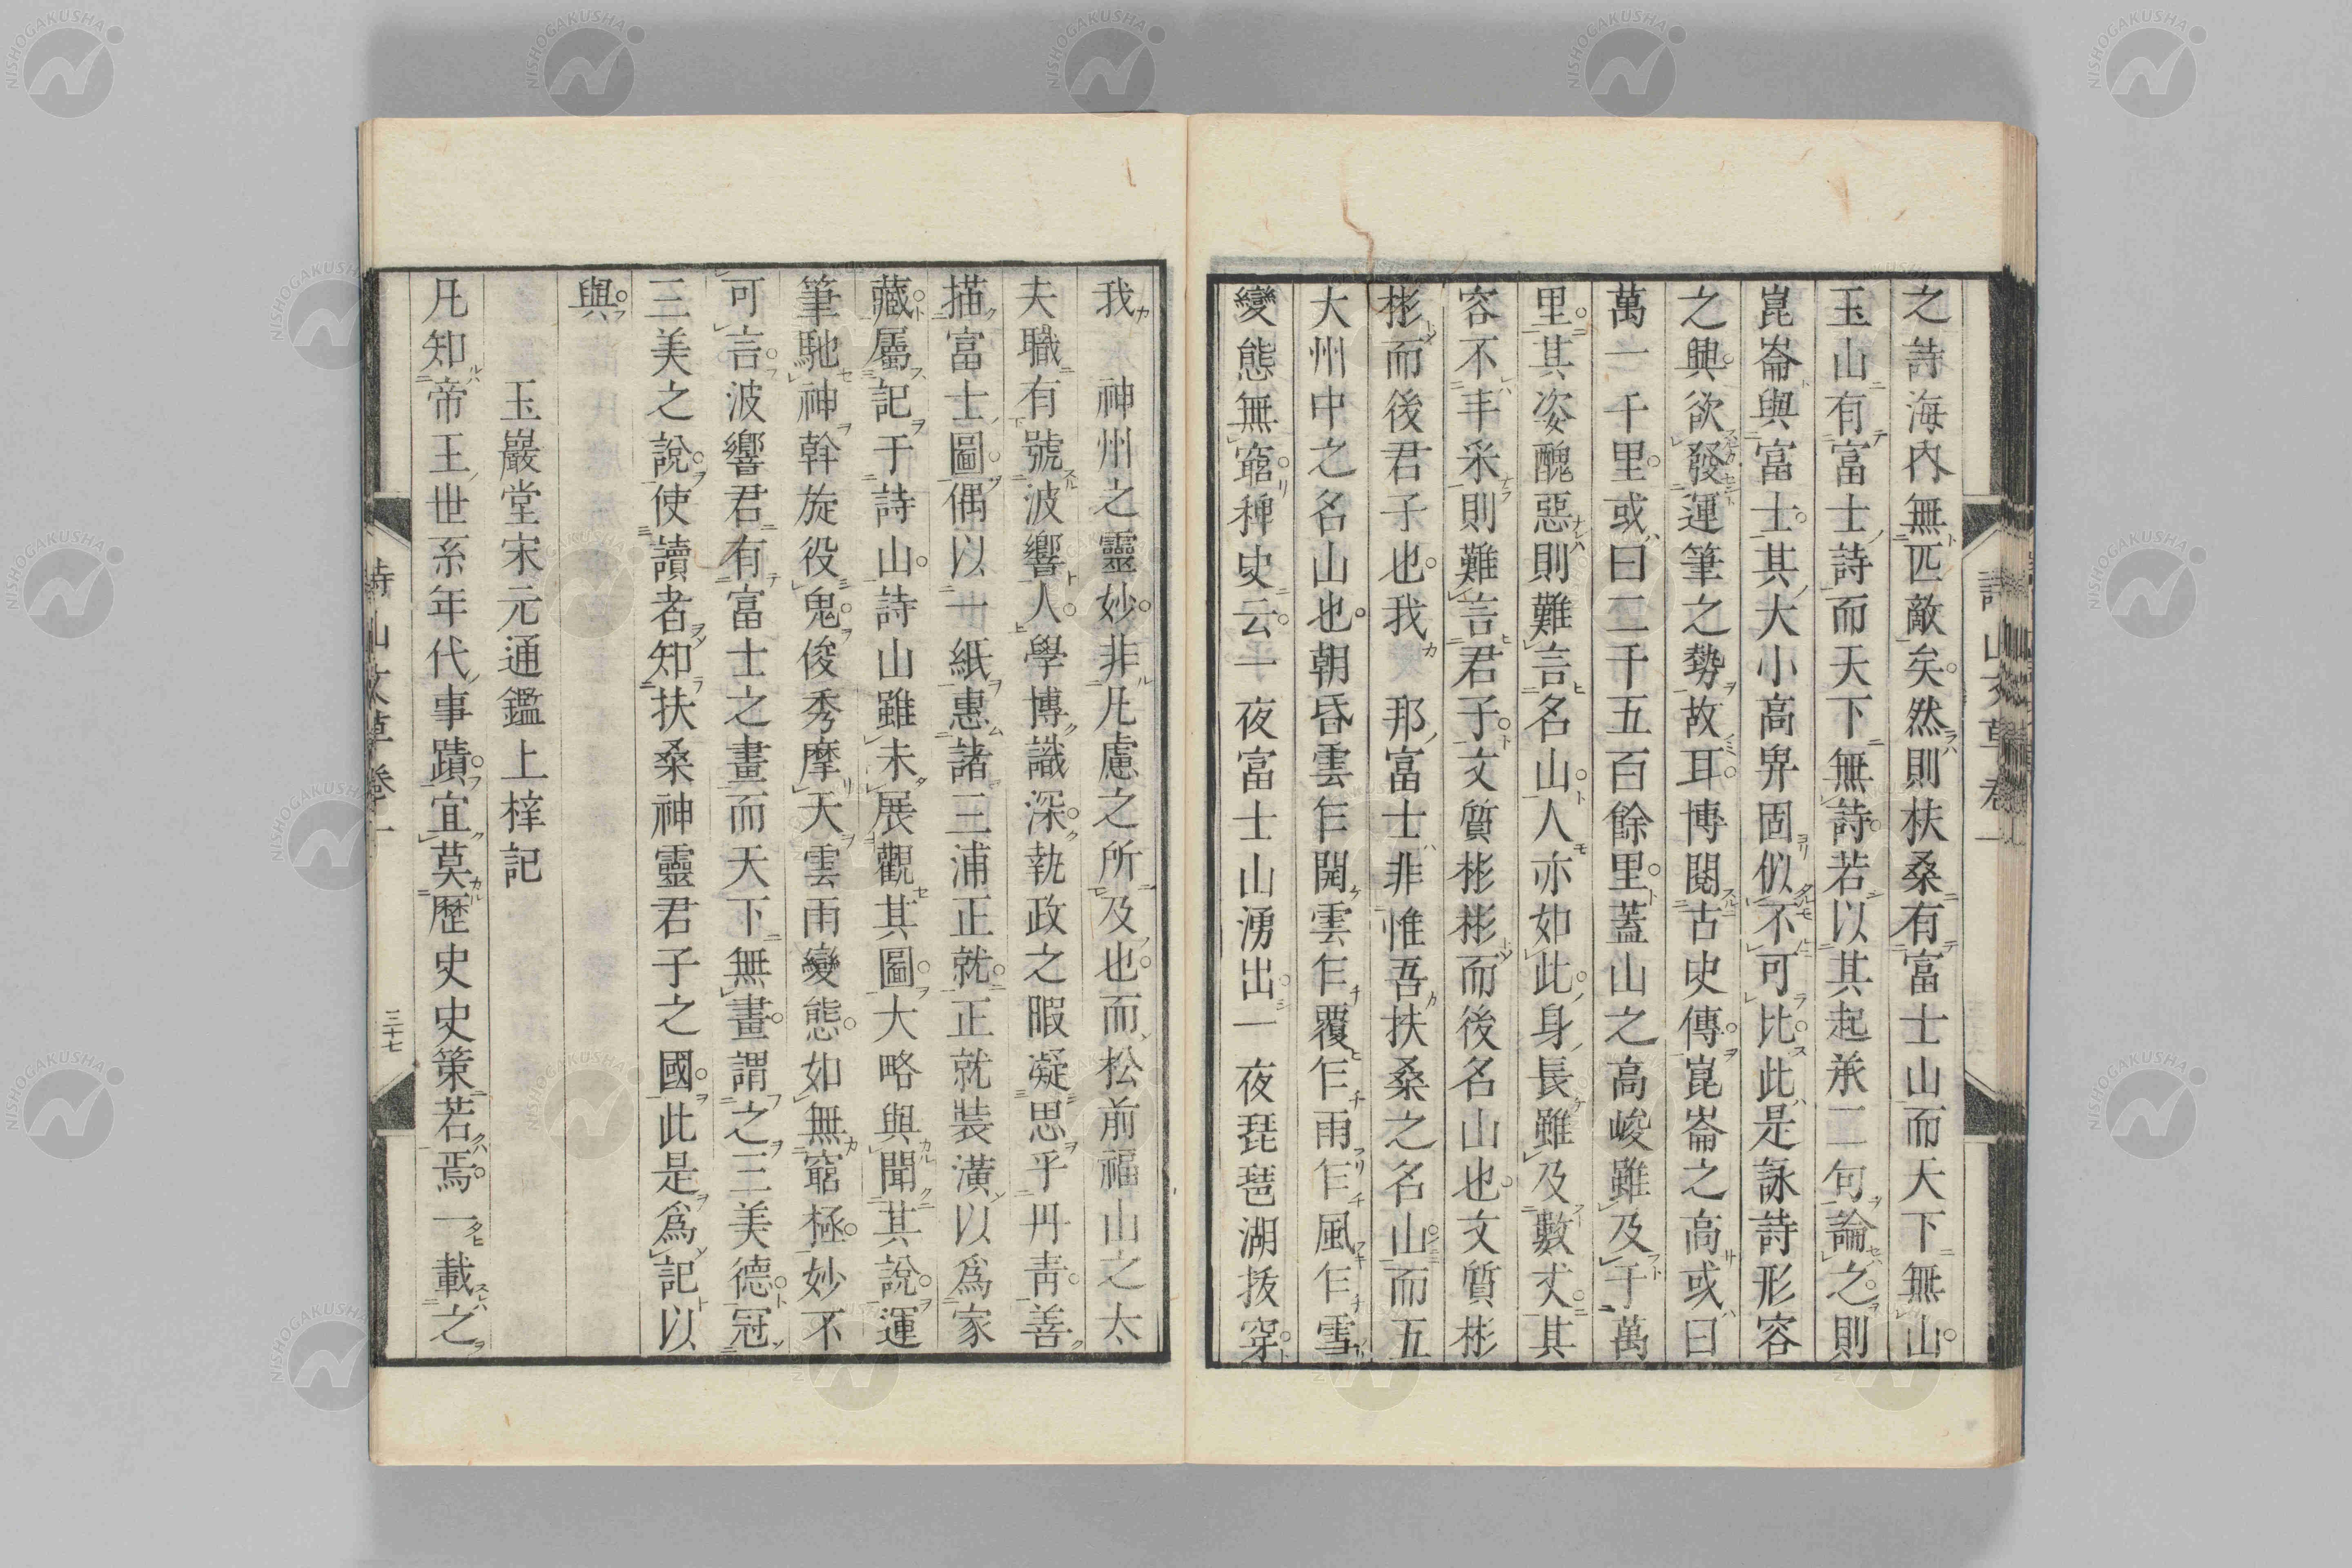 之詩海内無匹敵矣然則扶桑有富士山而天下無山
玉山有富士詩而天下無詩若以其起承二句論之則
崑崙與富士其大小高卑固似不可比此是詠詩形容
之興欲發運筆之勢故耳博閱古史傳崑崙之高或曰
萬一千里或曰二千五百餘里蓋山之高峻雖及于萬
里其姿醜惡則難言名山人亦如此身長雖及數丈其
容不丰采則難言君子文質彬彬而後名山也文質彬
彬而後君子也我 邦富士非惟吾扶桑之名山而五
大州中之名山也朝昏雲乍開雲乍覆乍雨乍風乍雪
變態無窮稗史云一夜富士山湧出一夜琵琶湖拔穿
詩山文草卷一
我 神州之靈妙非凡慮之所及也而松前福山之太
夫職有號波響人學博識深執政之暇凝思乎丹青善
描富士圖偶以一紙惠諸三浦正就正就裝潢以爲家
藏屬記于詩山詩山雖未展觀其圖大略與聞其說運
筆馳神斡旋役鬼俊秀摩天雲雨變態如無窮極妙不
可言波響君有富士之畫而天下無畫謂之三美德冠
三美之說使讀者知扶桑神靈君子之國此是爲記以
與
玉巖堂宋元通鑑上梓記
凡知帝王世系年代事蹟宜莫歷史史策若焉一載之
詩山文草卷一
三十七
NISHOGAKUSHA